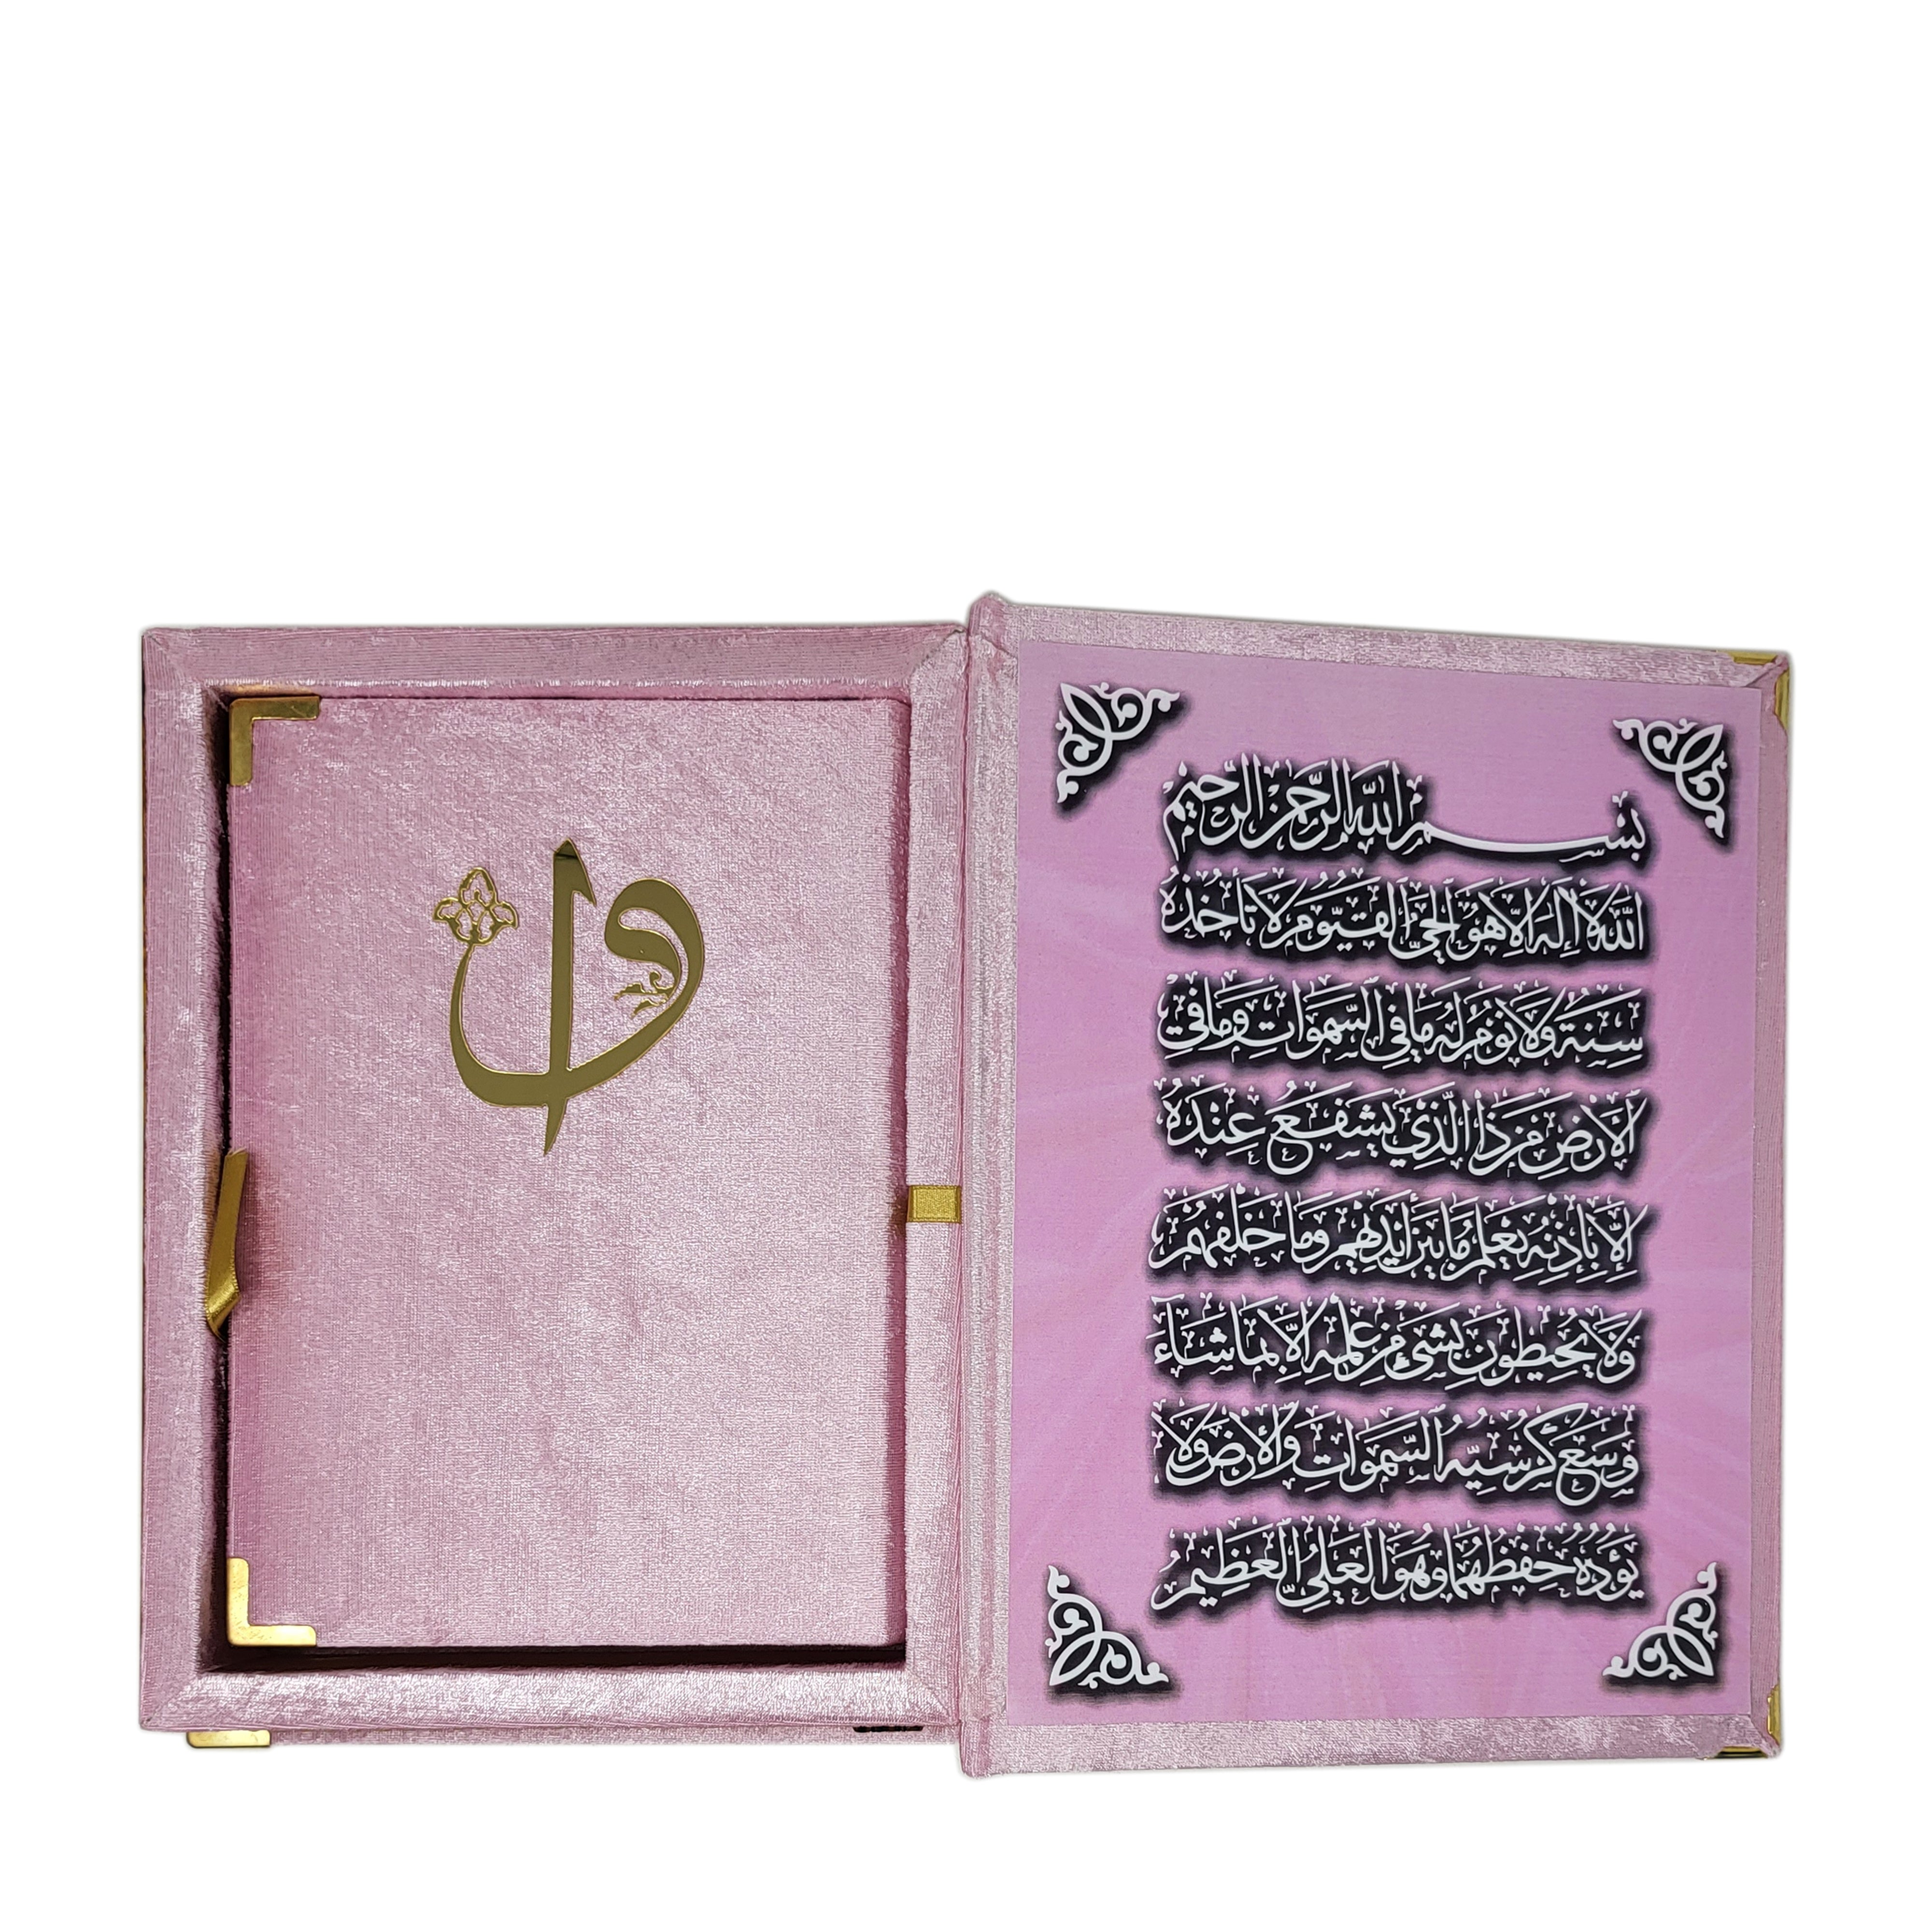 بِسْمِ اللهِ الرَّحْمٰنِ الرَّحِيمِ
اَللّٰهُ لَا اِلٰهَ اِلَّا هُوَ اَلْحَيُّ الْقَيُّومُ لَا تَأْخُذُهُ
سِنَةٌ وَلَا نَوْمٌ لَهُ مَا فِي السَّمٰوَاتِ وَمَا فِي
الْاَرْضِ مَنْ ذَا الَّذِي يَشْفَعُ عِنْدَهُ
اِلَّا بِاِذْنِهِ يَعْلَمُ مَا بَيْنَ اَيْدِيهِمْ وَمَا خَلْفَهُمْ
وَلَا يُحِيطُونَ بِشَيْءٍ مِنْ عِلْمِهِ اِلَّا بِمَا شَاءَ
وَسِعَ كُرْسِيُّهُ السَّمٰوَاتِ وَالْاَرْضَ وَلَا
يَؤُدُهُ حِفْظُهُمَا وَهُوَ الْعَلِيُّ الْعَظِيمُ